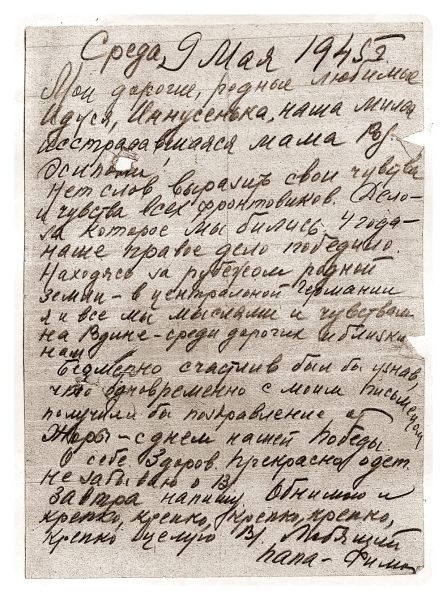 Среда, 9 Мая 1945 г.
Мои дорогие, родные любимые
Идуся, Иннусенька, наша милая
исстрадавшаяся мама В.
Осиповна
Нет слов выразить свои чувства
и чувства всех фронтовиков. Дело-
за которое мы бились 4 года-
наше правое дело победило.
Находясь за рубежом родной
земли - в центральной Германии
я и все мы мыслями и чувствами
на Родине - среди дорогих и близких
нам
Безмерно счастлив был бы узнав,
что одновременно с моим письмом
получили вы поздравление от
Жоры - с днем нашей победы.
О себе. Здоров. Прекрасно одет.
не забываю о В
Завтра напишу. Обнимаю и
крепко, крепко, крепко, крепко,
крепко целую В. Любящий
папа - Фима